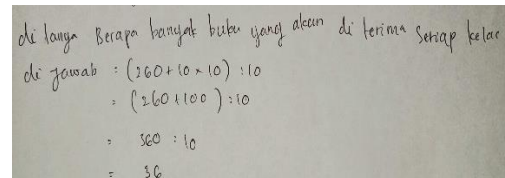 di tanya Berapa banyak buku yang akan di terima setiap kelas
di jawab : (260+10x10) : 10
= (260+100) : 10
= 360 : 10
= 36